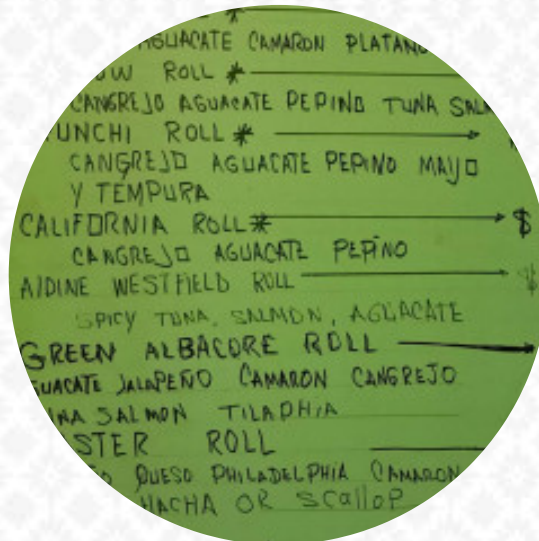 AGUACATE CAMARON PLATANO
ROLL *
CANGREJO AGUACATE PEPINO TUNA
ROLL *
CANGREJO AGUACATE PEPINO MAYO
Y TEMPURA
CALIFORNIA ROLL * $
CANGREJO AGUACATE PEPINO
AIDINE WESTFIELD ROLL $
SPICY TUNA, SALMON, AGUACATE
GREEN ALBACORE ROLL
AGUACATE JALAPEÑO CAMARON CANGREJO
SALMON TILAPHIA
ROLL
QUESO PHILADELPHIA CAMARON
HACHA OR SCALLOP